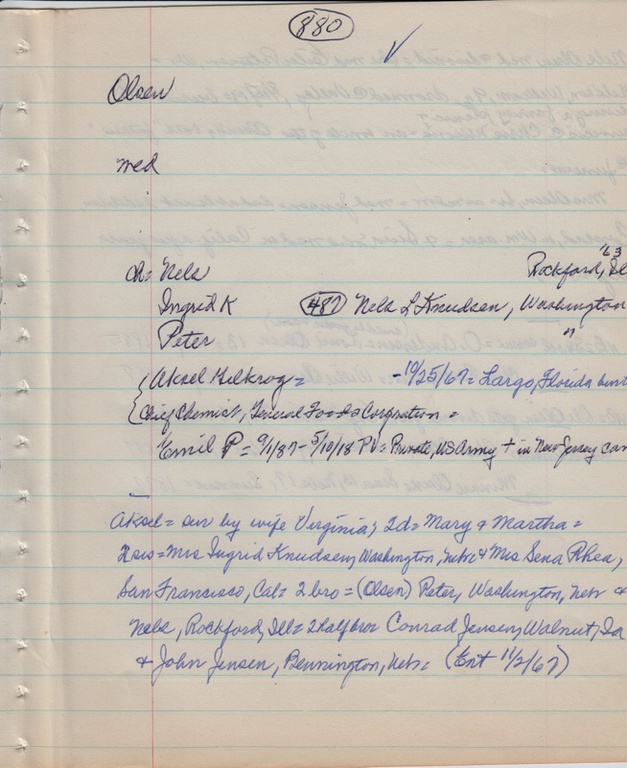 880
Olsen
med
ch = Nels Rockford, Ill '63
Ingrid K (487) Nels L Knudsen, Washington
Peter "
Aksel Helkrog = - 10/25/67 = Largo, Florida
Chief Chemist, General Foods Corporation =
Emil P = 9/1/87 - 5/10/18 PV = Private, US Army + in New Jersey
Aksel = sur by wife Virginia; 2d = Mary & Martha =
2 sis = Mrs Ingrid Knudsen, Washington, Nebr & Mrs Sena Rhea,
San Francisco, Cal = 2 bro = (Olsen) Peter, Washington, Nebr &
Nels, Rockford, Ill = 2 half bro Conrad Jensen, Walnut, Ia
& John Jensen, Bennington, Nebr = (Ent 11/2/67)